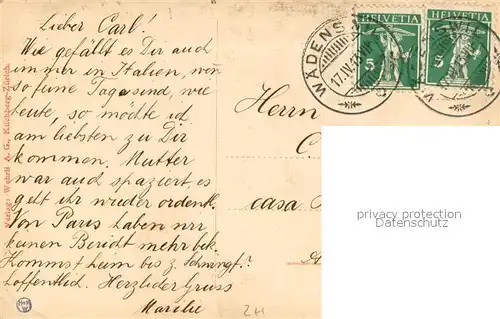 Lieber Carl!
Wie gefällt es Dir auch
immer in Italien, wenn
so feine Tage sind, wie
heute, so möchte ich
am liebsten zu Dir
kommen. Mutter
war auch spaziert, es
geht ihr wieder ordentl.
Von Paris haben wir
keinen Bericht mehr bek.
Kommst heim bis z.
hoffentlich. Herzlicher Gruss
HELVETIA
5
HELVETIA
5
WÄDENS
17.IV.
Herrn
casa
privacy protection
Datenschutz
Verlag: Wehrli A.-G., Kilchberg-Zürich.